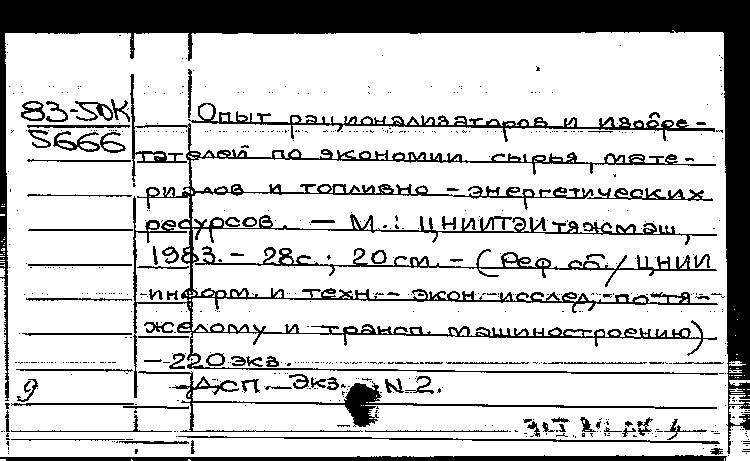 83-50К
5666
Опыт рационализаторов и изобре-
тателей по экономии сырья, мате-
риалов и топливно-энергетических
ресурсов. — М.: ЦНИИТЭИтяжмаш,
1983. - 28с.; 20см. - (Реф. сб. / ЦНИИ
информ. и техн.-экон. исслед. по тя-
желому и трансп. машиностроению)
— 220 экз.
Экз. N 2.
9